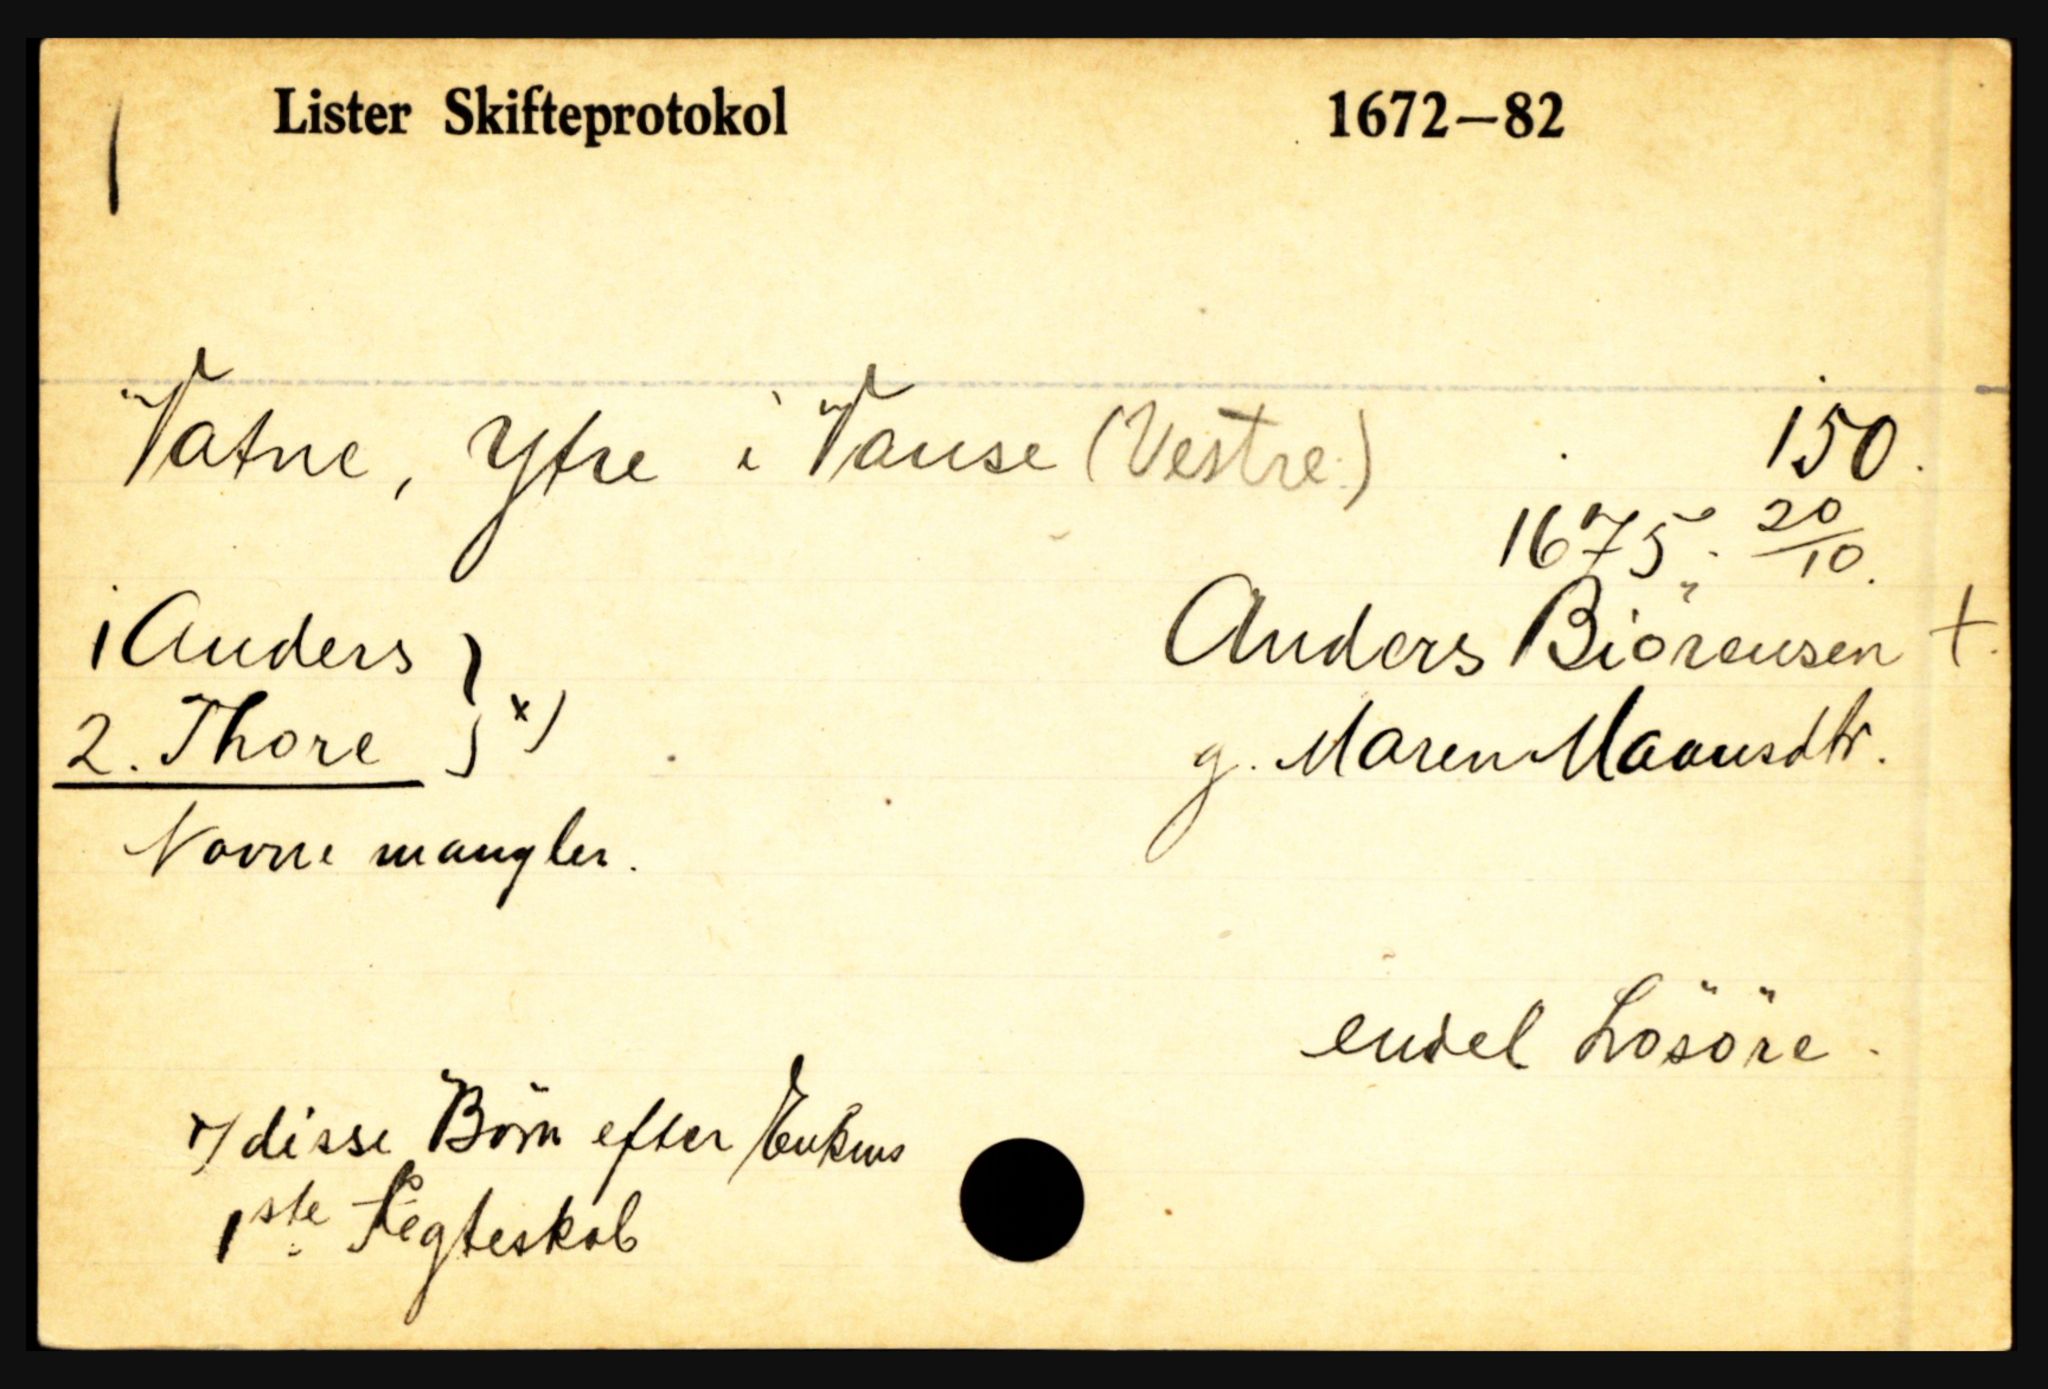 Lister Skifteprotokol 1672—82
Vatne, Ytre i Vanse (Vestre) 150.
1675. 20/10.
1 Anders
Anders Biörensen +
2. Thore } x)
g. Maren Maansdtr.
Navne mangler.
endel Lösöre.
x) disse Börn efter Enkens
1ste Ægteskab